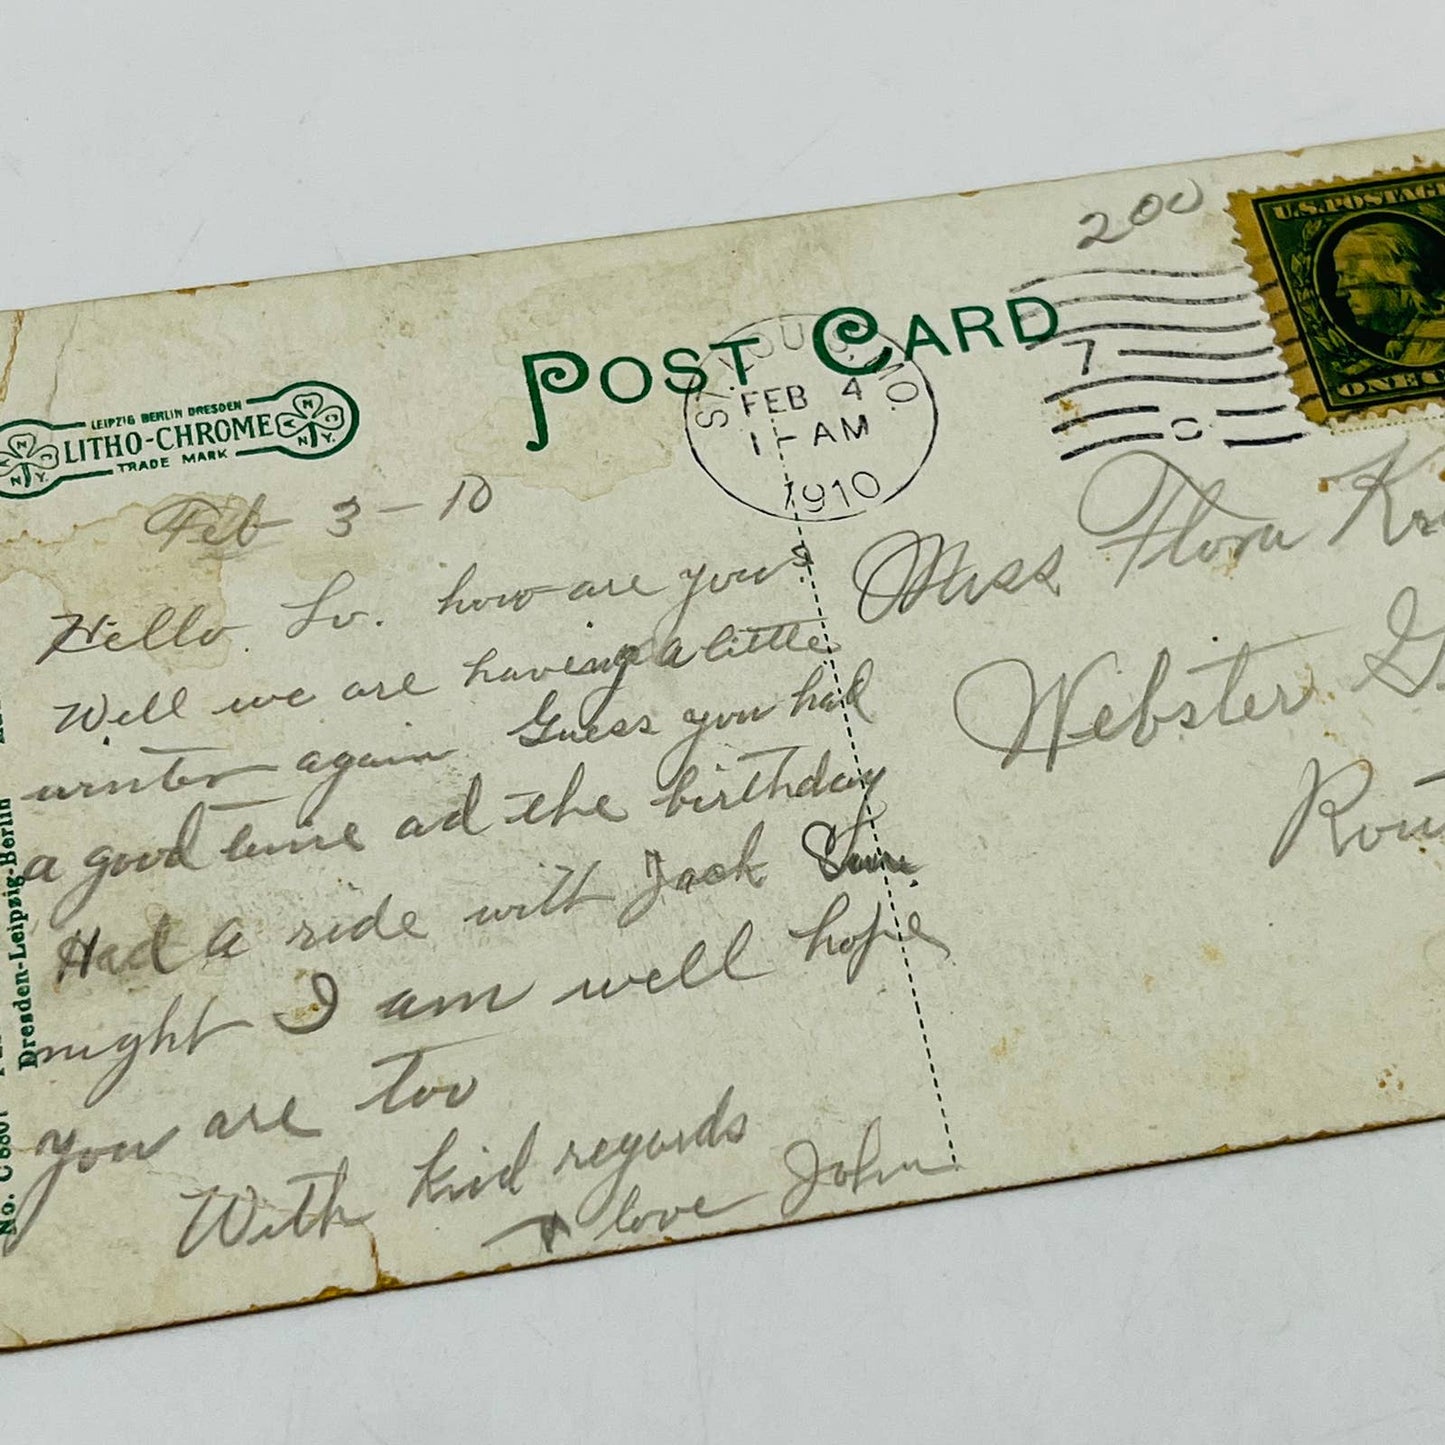 POST CARD
LEIPZIG BERLIN DRESDEN
LITHO-CHROME
TRADE MARK
200
U.S. POSTAGE
ONE
ST. LOUIS, MO.
FEB 4
1-AM
1910
7
C
Feb 3-10
Hello Lo. how are you?
Well we are having a little
winter again Guess you had
a good time ad the birthday
Had a ride with Jack Sun.
night I am well hope
you are too
With kid regards
+ love John
Miss Flora
Webster
Dresden-Leipzig-Berlin
No. C